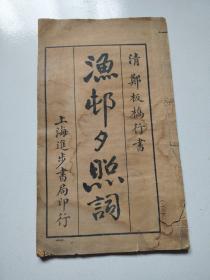 清鄭板橋行書
漁邨夕照詞
上海進步書局印行